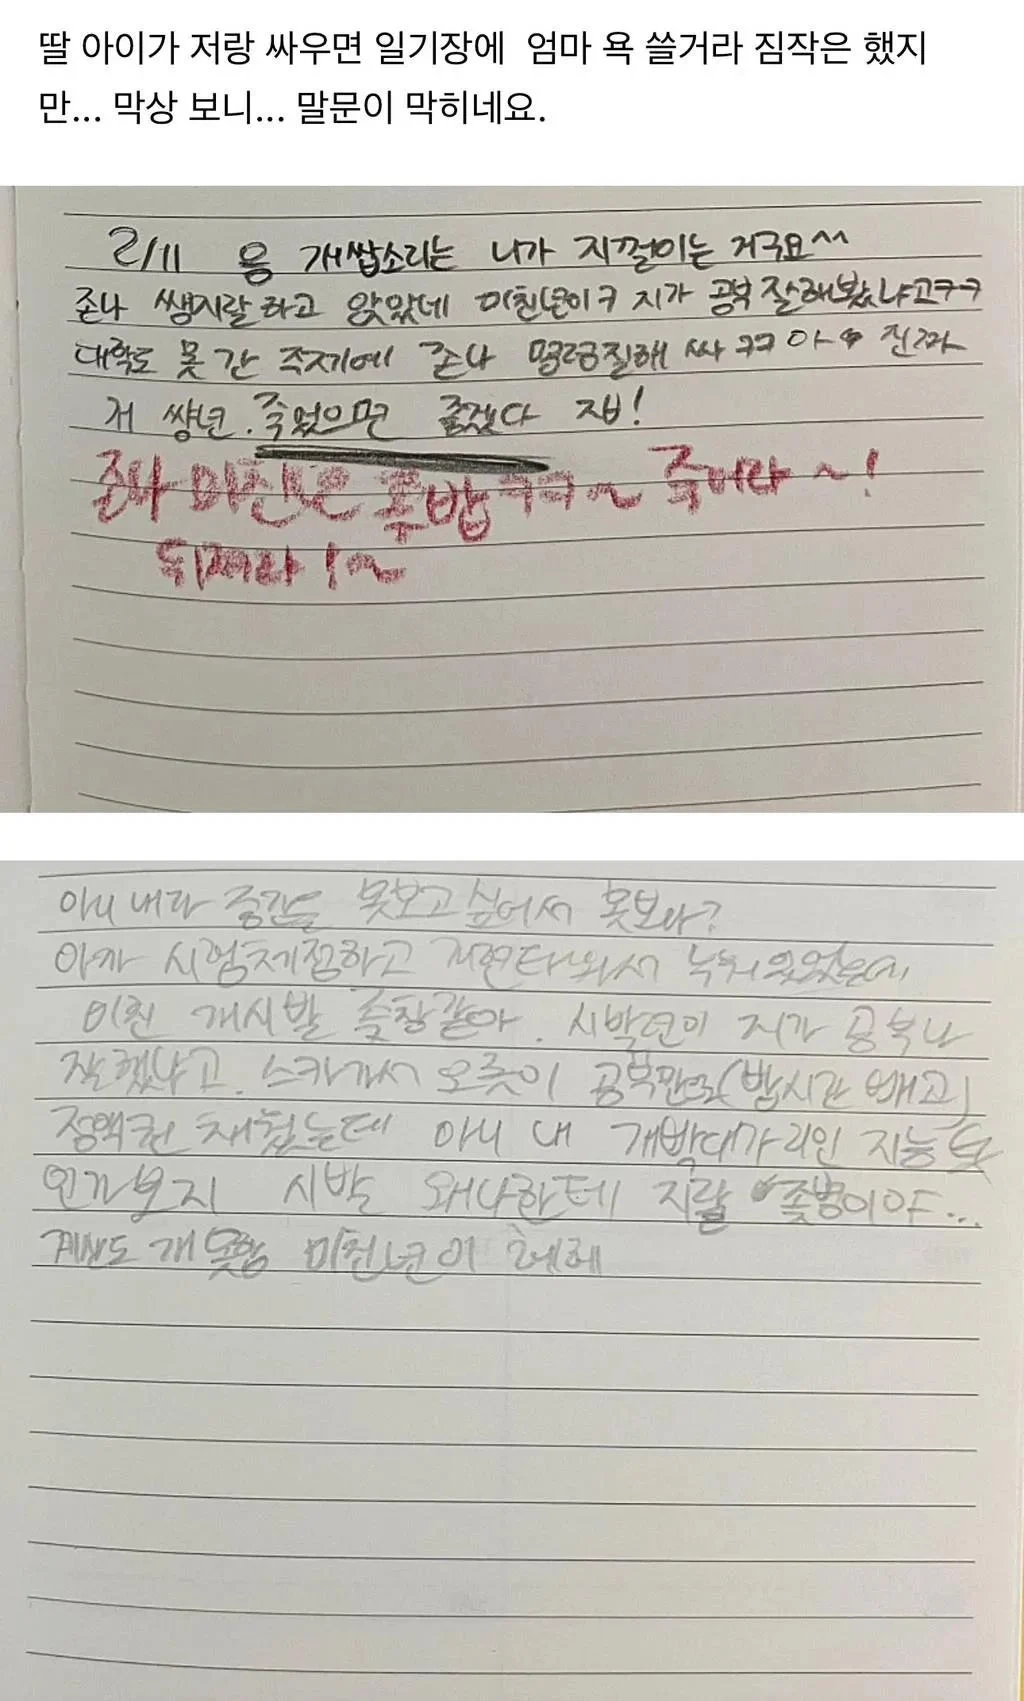 딸 아이가 저랑 싸우면 일기장에 엄마 욕 쓸거라 짐작은 했지
만... 막상 보니... 말문이 막히네요.
2/11 응 개쌉소리는 니가 지껄이는 거구요^^
존나 쌩지랄하고 앉았네 미친년이ㅋ 지가 공부 잘해봤냐고ㅋㅋ
대학도 못 간 주제에 존나 명령질해 싸 ㅋㅋ 아 진짜
저 썅년. 죽었으면 좋겠다 제발!
존나 미친년 좆밥 ㅋㅋ~ 죽어라~!
뒤져라!~
아니 내가 중간을 못보고 싶어서 못보나?
아까 시험채점하고 현타와서 누워있었는데
미친 개시발 좆창같아. 시발년이 지가 공부나
잘했냐고. 스카가서 오롯이 공부만으로(밥시간 빼고)
정액권 채웠는데 아니 내 개빡대가리인 지능도
인가보지 시발 왜나한테 지랄 좆병이야...
계산도 개못함 미친년이 헤헤